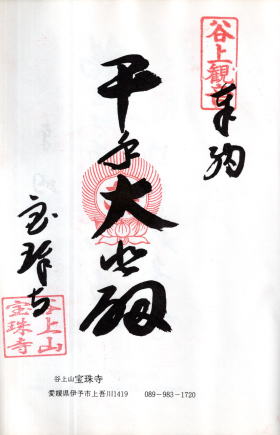 谷上観音
奉納
千手大悲殿
宝珠寺
谷上山
宝珠寺
谷上山 宝珠寺
愛媛県伊予市上吾川1419 089-983-1720